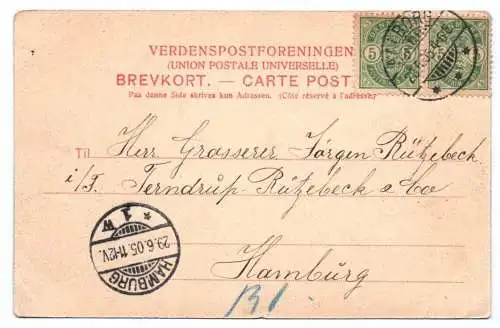 VERDENSPOSTFORENINGEN
(UNION POSTALE UNIVERSELLE)
BREVKORT. — CARTE POST
Paa denne Side skrives kun Adressen. (Côté réservé à l'adresse)
5 5
Til Herr Grosserer Jörgen Rützebeck
i/F. Terndrup-Rützebeck & Co
Hamburg
HAMBURG
29.6.05. 11-12V.
* 1w
B1.